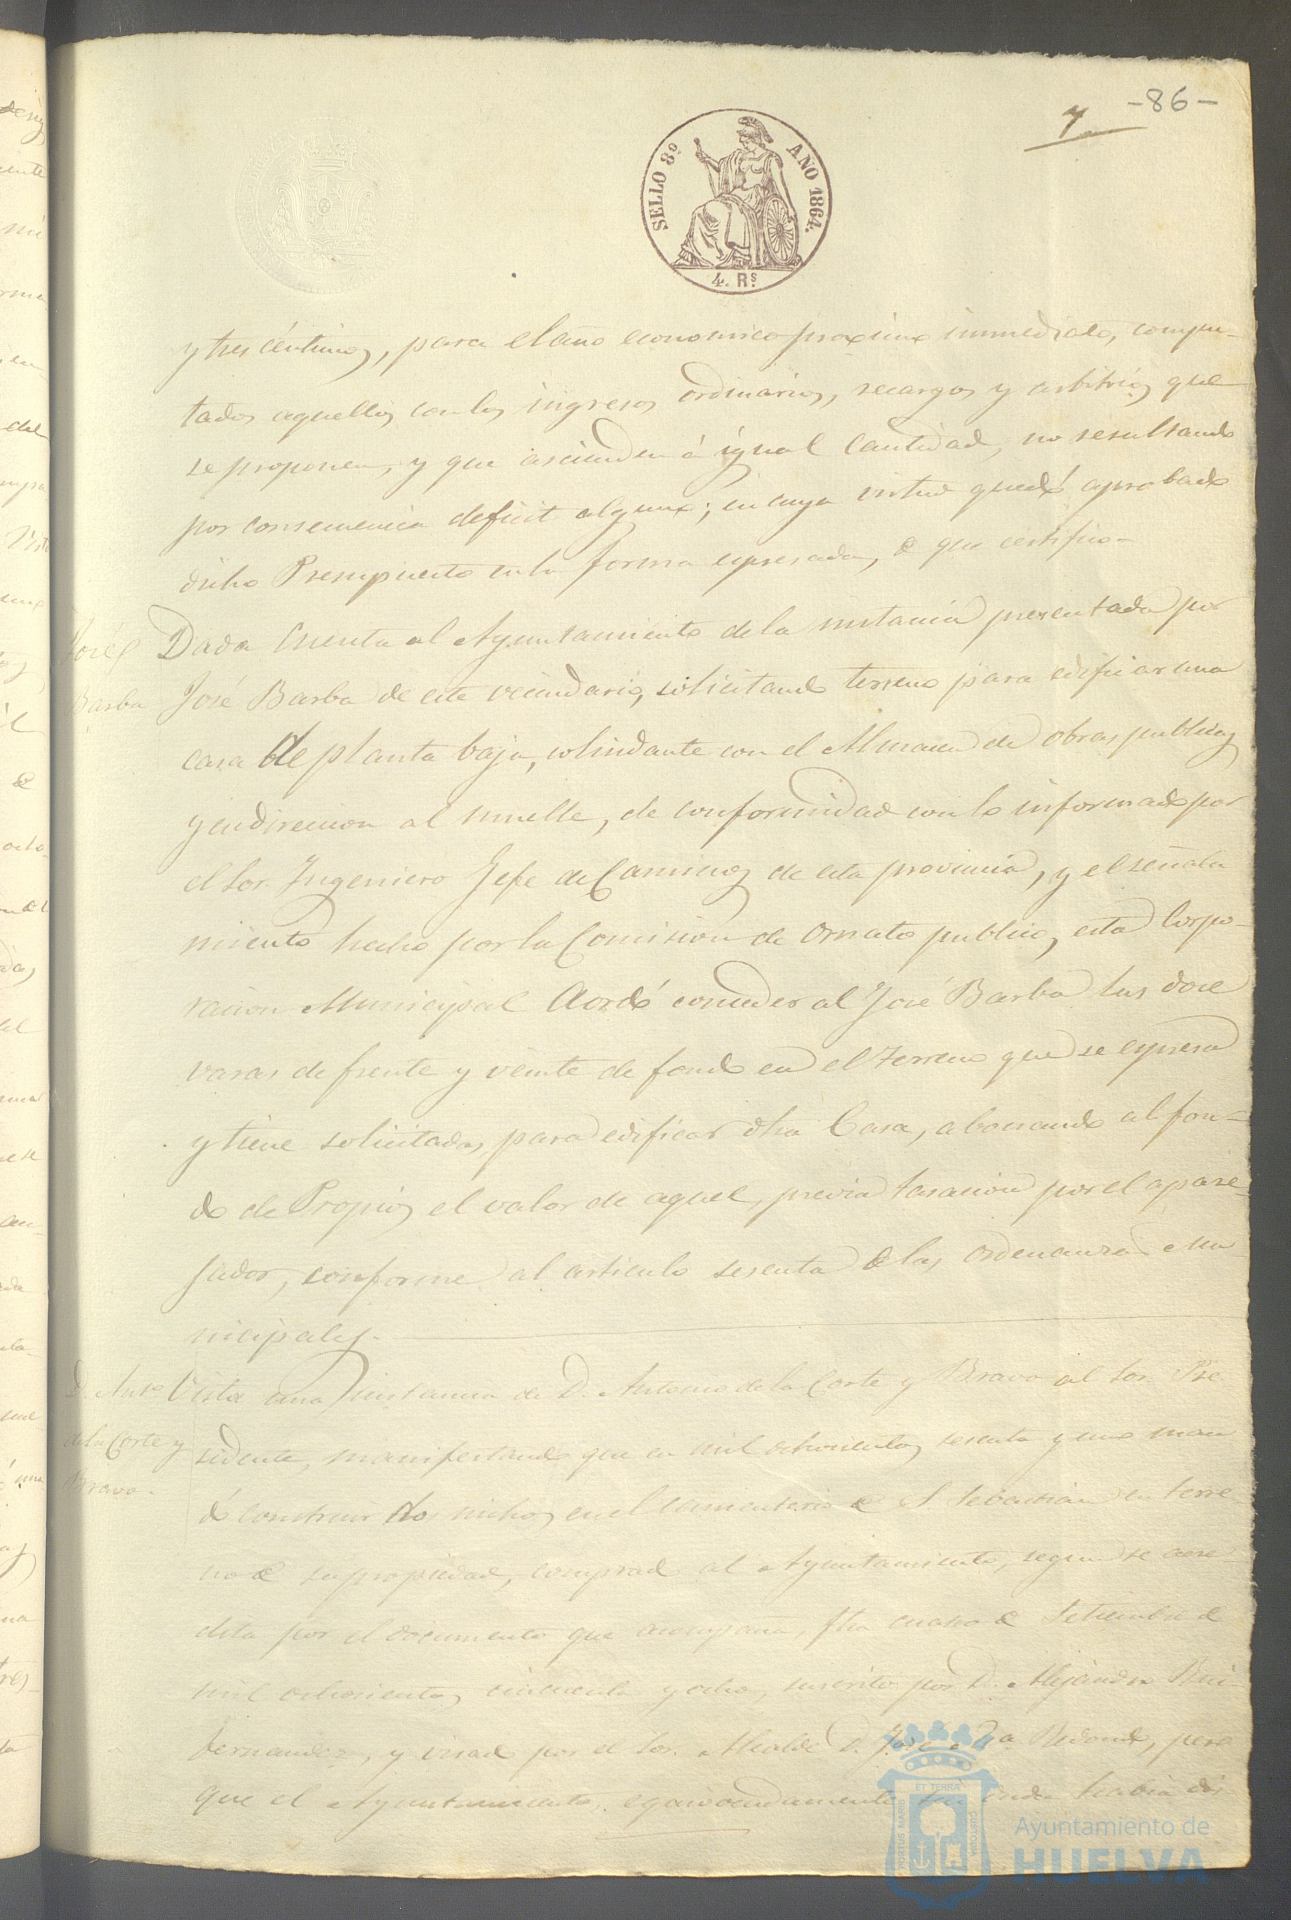 -86-
7
SELLO 8º AÑO 1864.
4. Rs
y tres céntimos, para el año economico proximo inmediato, compu-
tados aquellos con los ingresos ordinarios, recargos y arbitrios que
se proponen, y que ascienden á igual Cantidad, no resultando
por consecuencia deficit alguno; en cuya virtud quedó aprobado
dicho Presupuesto en la forma espresada, de que certifico-
José
Barba
Dada Cuenta al Ayuntamiento de la instancia presentada por
José Barba de este vecindario, solicitando terreno para edificar una
casa de planta baja, colindante con el Almacen de obras publicas
y en direccion al muelle, de conformidad con lo informado por
el Sor. Ingeniero Jefe de Caminos de esta provincia, y el señala
miento hecho por la Comision de Ornato publico, esta Corpo-
racion Municipal Acordó conceder al José Barba las doce
varas de frente y veinte de fondo en el Terreno que se espresa
y tiene solicitadas para edificar dha Casa, abonando al fon-
do de Propios el valor de aquel, previa tasacion por el apare-
jador, conforme al articulo sesenta de las ordenanzas Mu
nicipales.
D. Antº
de la Corte y
Bravo.
Vista una instancia de D. Antonio de la Corte y Bravo al Sor. Pre
sidente, manifestando que en mil ochocientos sesenta y uno man
dó construir dos nichos en el cementerio de S. Sebastian en terre-
no de su propiedad, comprado al Ayuntamiento, segun se acre
dita por el documento que acompaña, fha cuatro de Setiembre de
mil ochocientos cincuenta y ocho, suscrito por D. Alejandro
Fernandez, y visado por el Sor. Alcalde D. José Mª Redondo, pero
que el Ayuntamiento, equivocadamente sin duda habia dis
PORTUS MARIS ET TERRA CUSTODIA
Ayuntamiento de
HUELVA